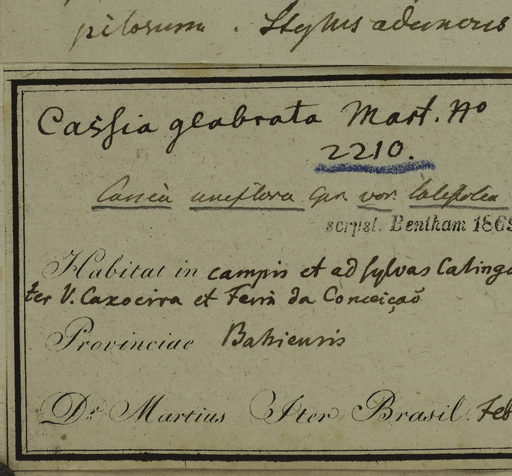 pilosum. Stylus aduncus
Cassia glabrata Mart. No
2210.
Cassia uniflora Spr. var.
scrpst. Bentham 1869
Habitat in campis et ad sylvas Catinga
ter V. Caxoeira et Feira da Conceição
Provinciae Bahiensis
Dr. Martius Iter Brasil. Feb